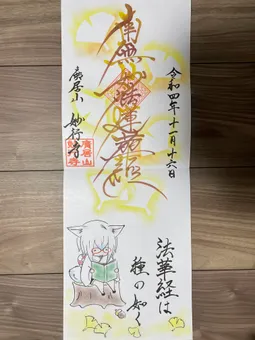 令和四年十一月十六日
南無妙法蓮華経
廣居山 妙行寺
法華経は
種の如く